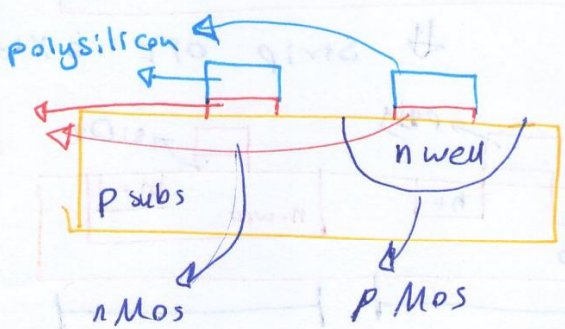 polysilicon
n well
p subs
nMos
pMos